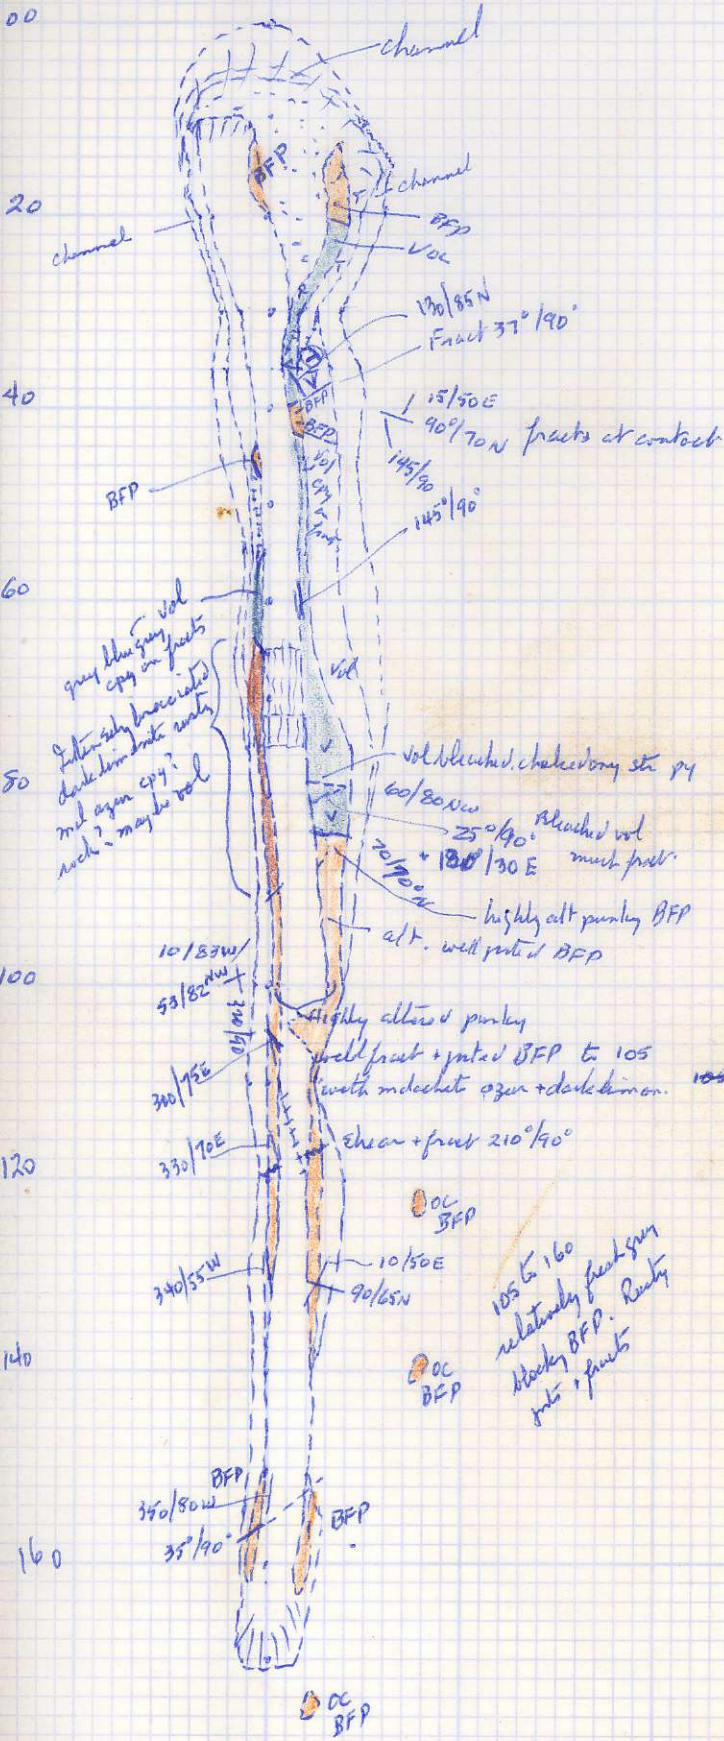 00
channel
BFP
channel
20
BFP
VOL
channel
130/85N
Fract 37°/90°
40
BFP
BFP
15/50E
90°/70N fracts at contact
145/90
Vol
BFP
145°/90°
60
grey blue grey vol
cpy on fracts
Vol
Intensely brecciated
dark limonite rusty
mal azur cpy?
rock? maybe vol
vol bleached. chalcedony str py
80
60/80NW
25°/90° Bleached vol
/30E much fract.
70/70°N
highly alt punky BFP
alt. well jnted BFP
10/83W
100
53/82NW
320/90
Highly altered punky
well fract + jnted BFP to 105
with malachite azur + dark limon.
105
300/75E
Shear + fract 210°/90°
120
330/70E
OC
BFP
10/50E
340/55W
90/65N
105 to 160
relatively fresh grey
blocky BFP. Rusty
jnts + fracts
140
OC
BFP
BFP
350/80W
BFP
35°/90°
160
OC
BFP